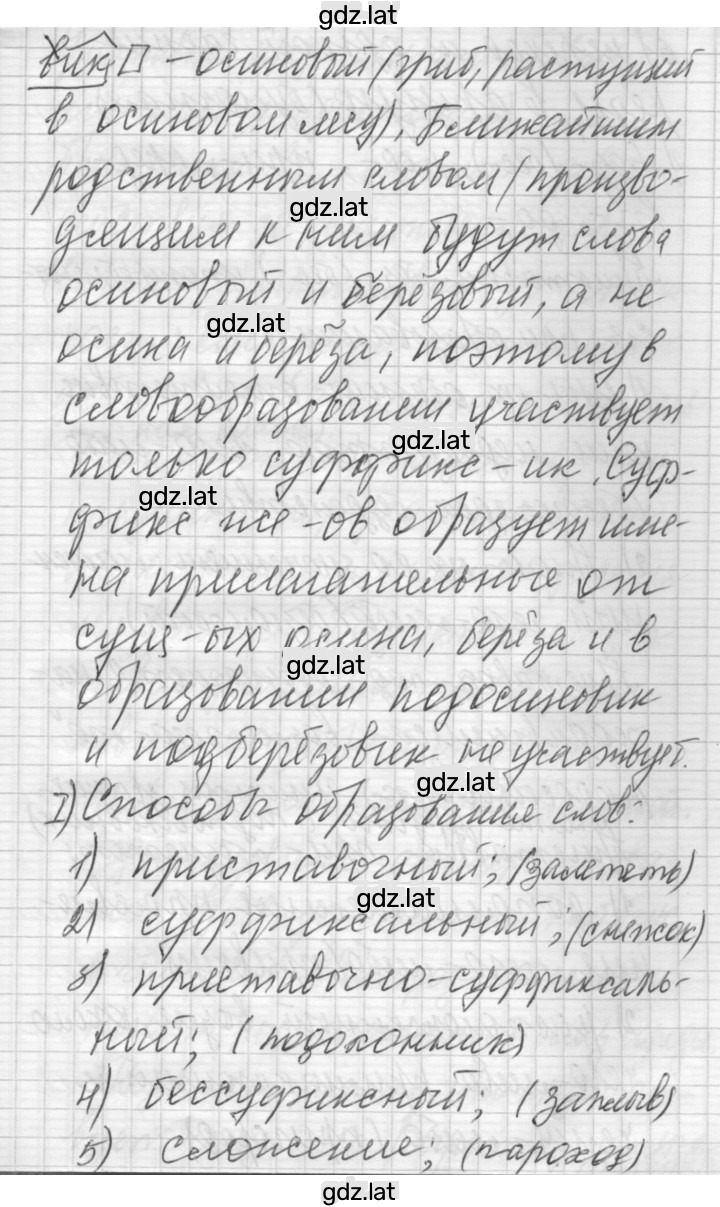 gdz.lat
вик – осиновый (гриб, растущий
в осиновом лесу). Ближайшим
родственным словом (произво-
gdz.lat
дящим к ним будут слова
осиновый и берёзовый, а не
gdz.lat
осина и берёза, поэтому в
словообразовании участвует
gdz.lat
только суффикс -ик. Суф-
gdz.lat
фикс же -ов образует име-
на прилагательные от
сущ-ых осина, берёза и в
gdz.lat
образовании подосиновик
и подберёзовик не участвует.
gdz.lat
I) Способы образования слов:
1) приставочный; (залететь)
gdz.lat
2) суффиксальный; (снежок)
3) приставочно-суффиксаль-
ный; (подоконник)
4) бессуфиксный; (заплыв)
5) сложение; (пароход)
gdz.lat